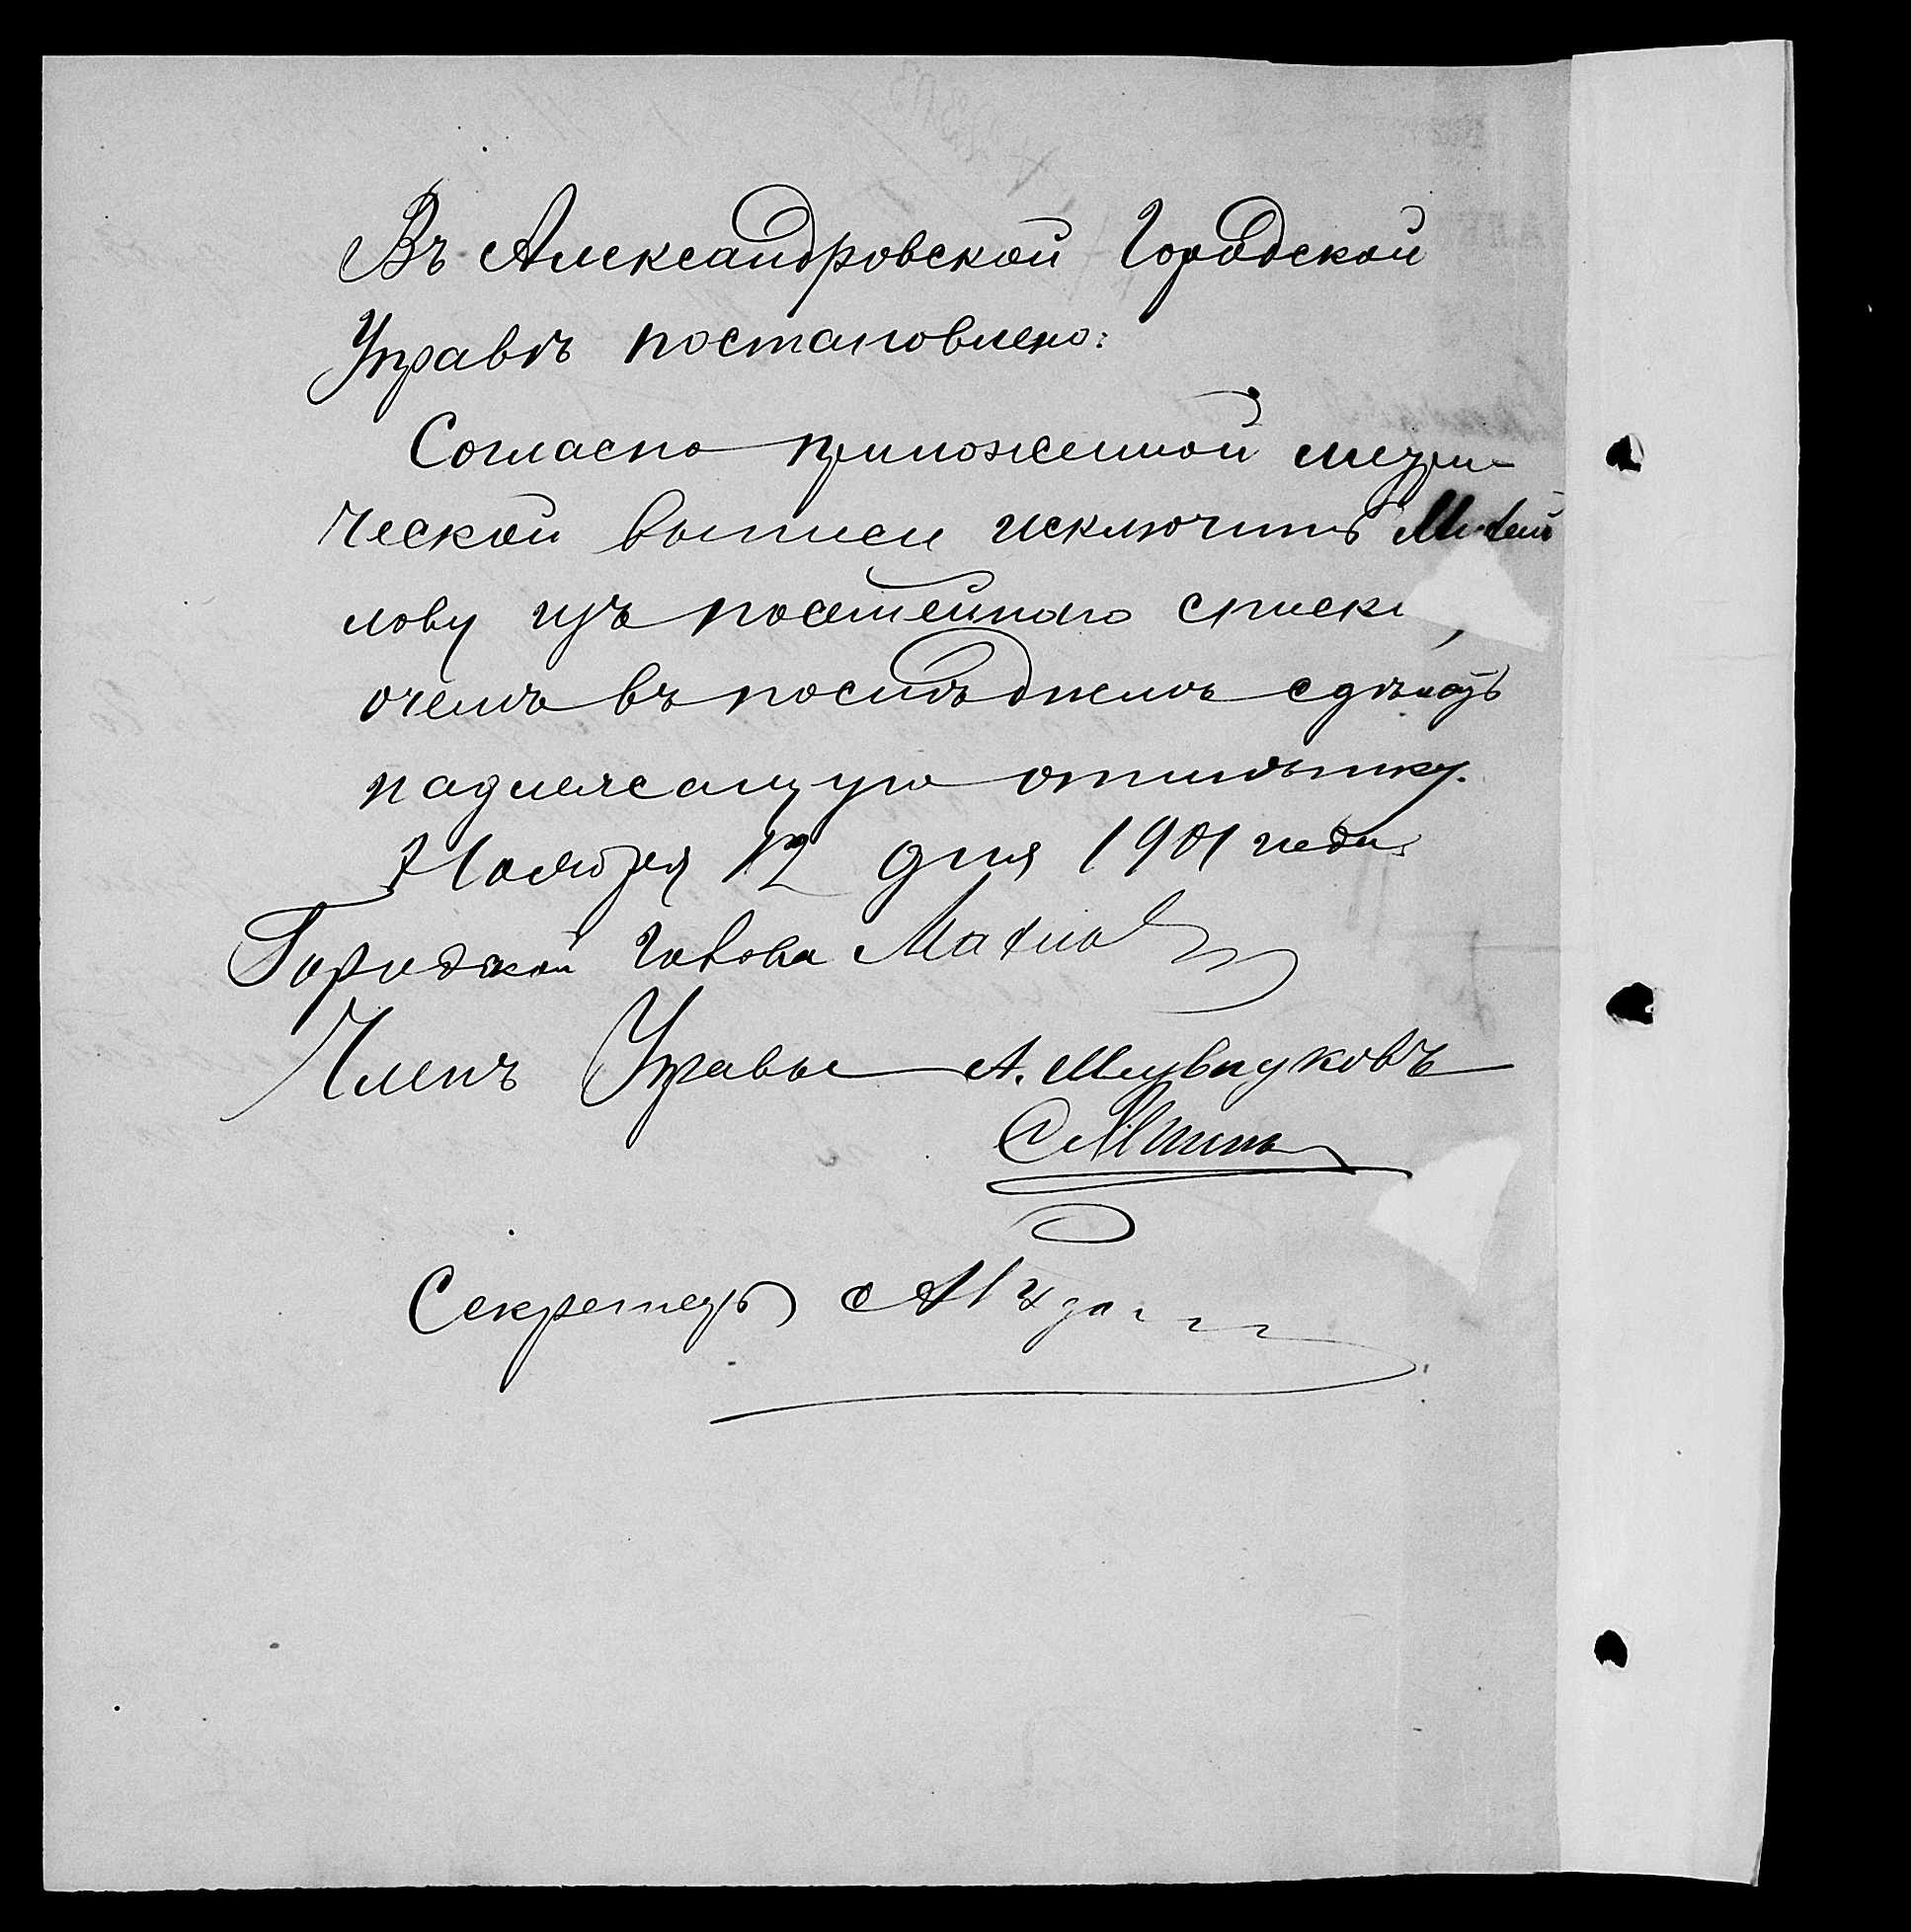 Въ Александровской Городской
Управѣ постановлено:
Согласно приложенной метри-
ческой выписи исключить Михай
лову изъ посемейнаго списка,
о чемъ въ послѣднемъ сдѣлать
надлежащую отмѣтку.
Ноября 12 дня 1901 года.
Городской Голова
Членъ Управы А.
Секретарь